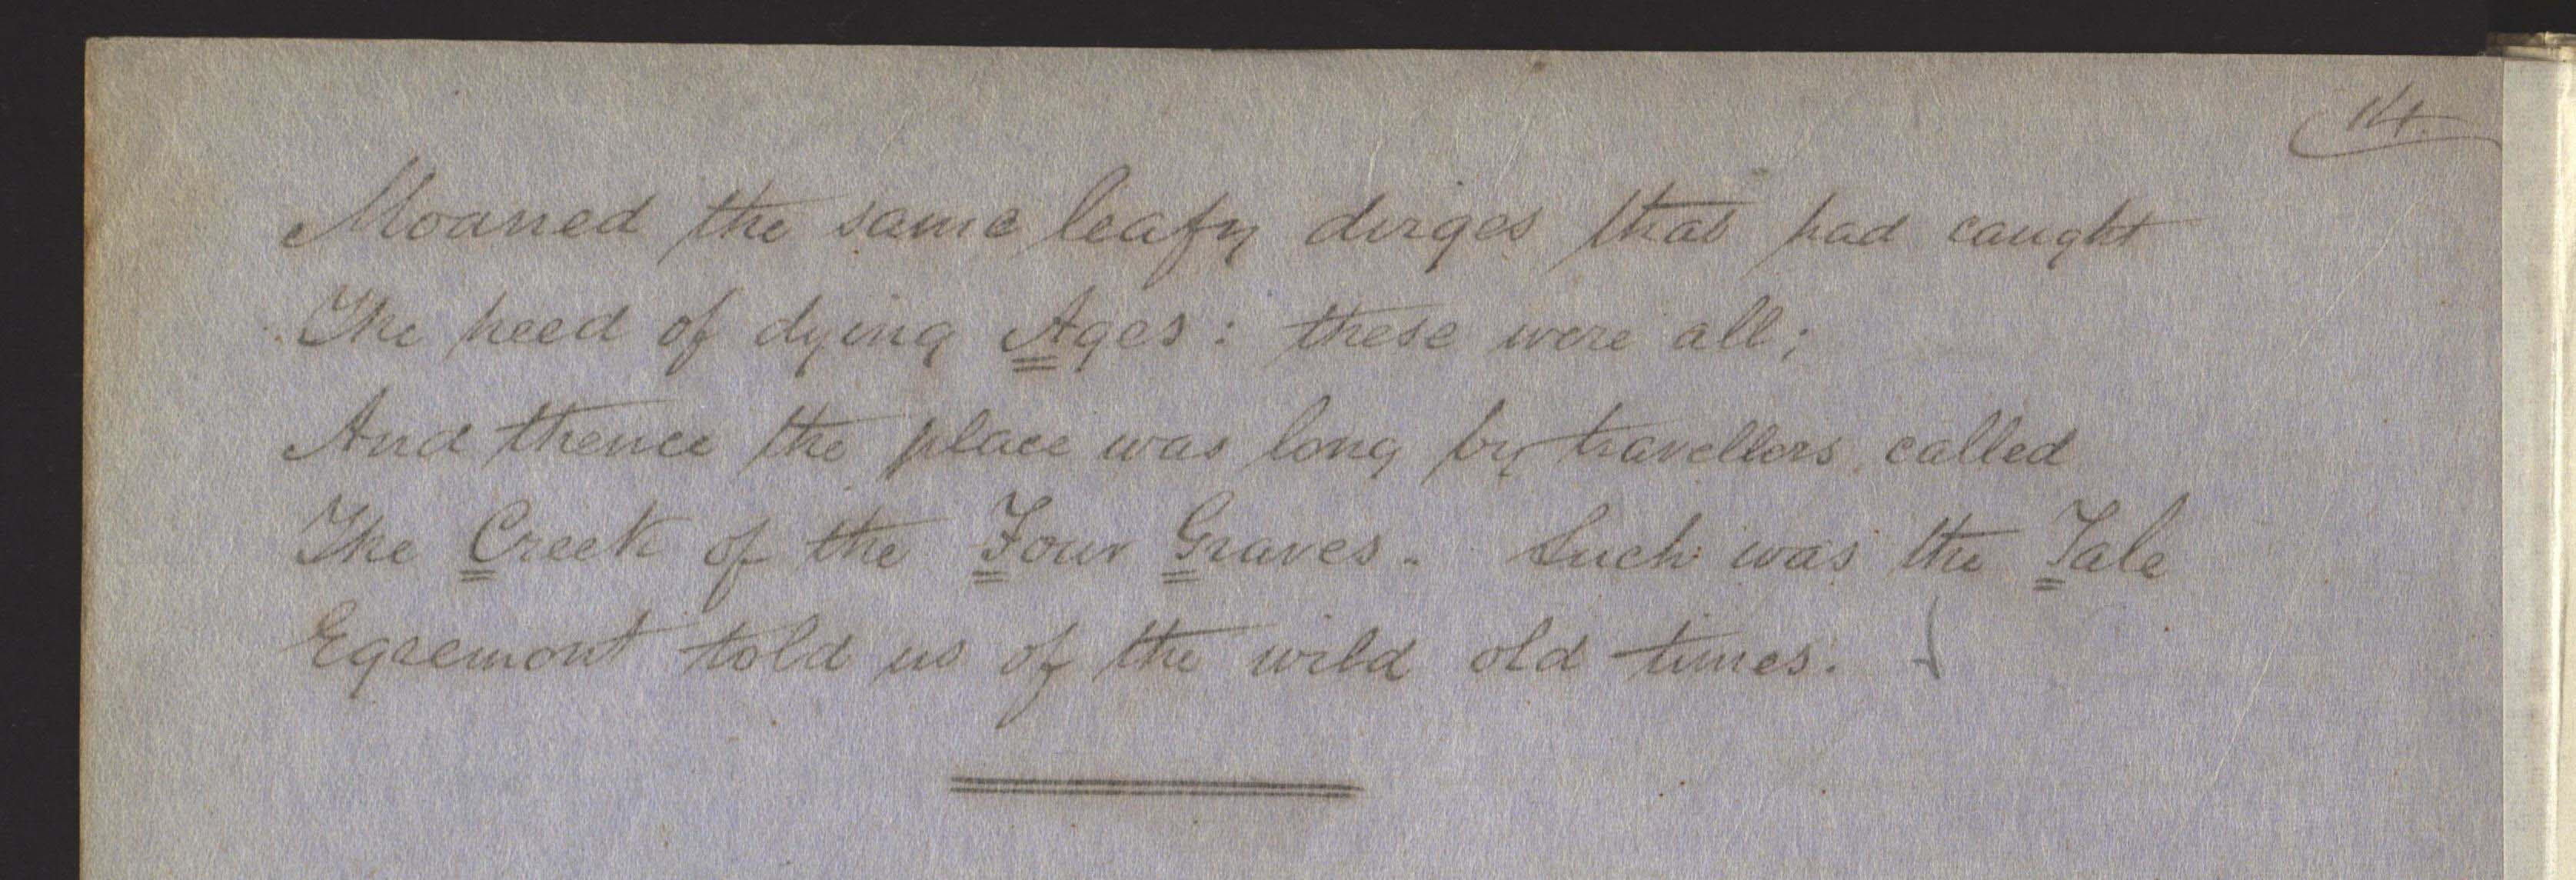 14.
Moaned the same leafy dirges that had caught
The heed of dying Ages: these were all;
And thence the place was long by travellers called
The Creek of the Four Graves. Such was the Tale
Egremont told us of the wild old times.